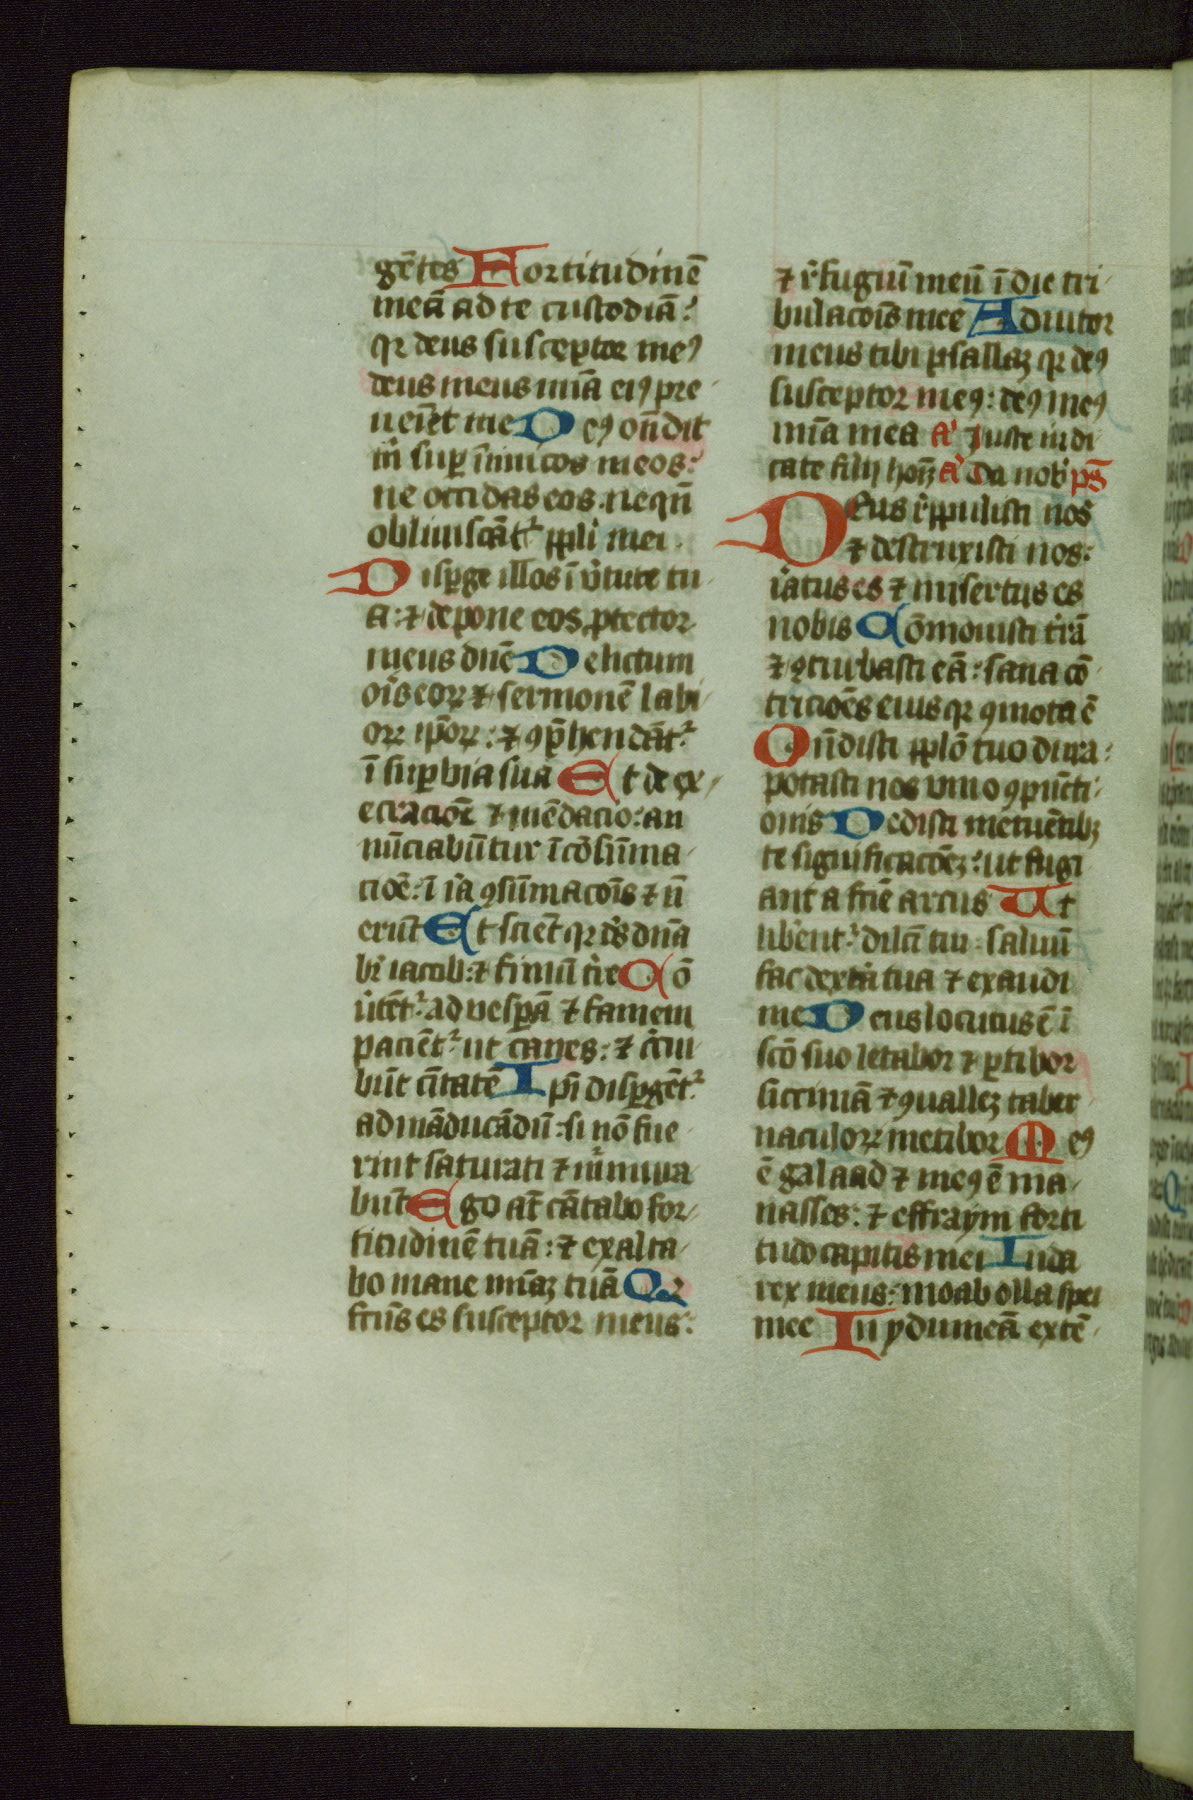 gētes Fortitudinē
meā ad te custodiā:
qꝛ deus susceptor meꝰ
deus meus mīa eiꝰ pre
ueīet me Deꝰ oñdit
m̄ suꝑ īnimicos meos:
ne occidas eos. neqñ
obliuiscāt᷑ ppl̄i mei
Disꝑge illos ī v̓tute tu
a: ⁊ depone eos ꝓtector
meus dn̄e Delictum
oīs eoꝝ ⁊ sermonē labi
oꝝ ip̄oꝝ: ⁊ ꝯp̄hendāt᷑
ī suꝑbia sua Et de ex
ecracōe ⁊ mēdacio: an
nūciabūtur ī cōsūma
cioē: ī ira ꝯsūmacoīs ⁊ n̄
erūt Et sciēt qꝛ ds̄ dn̄a
bꝛ̄ iacob: ⁊ finiū tr̄e Cō
u̓tēt᷑ ad vesꝑā ⁊ famem
paciēt᷑ ut canes: ⁊ cͥcui
būt cītatē Ip̄i disꝑgēt᷑
ad māducādū: si nō fue
rint saturati ⁊ mͬmura
būt Ego aūt cātabo for
titudinē tuā: ⁊ exalta
bo mane mīaꝫ tuā Qꝛ
fcūs es susceptor meus:
⁊ r̓fugiū meū ī die tri
bulacoīs mee Adiutor
meus tibi psallaꝫ qꝛ deꝰ
susceptor meꝰ: deꝰ meꝰ
mīa mea a᷑ Juste iudi
cate filij hoīꝫ a᷑ Da nob̓ ps̄
Deus r̓ppulisti nos
⁊ destruxisti nos:
iratus es ⁊ misertus es
nobis Cōmouisti tr̄ā
⁊ ꝯturbasti eā: sana cō
tricioēs eius qꝛ ꝯmota ē
Oñdisti ppl̄o tuo dura:
potasti nos vino ꝯpūcti
onis Dedisti metuētibꝫ
te significacōeꝫ: ut fugi
ant a fcīe arcus Ut
libēnt᷑ dilc̄i tui: saluū
fac dext̓a tua ⁊ exaudi
me Deus locutus ē ī
scō suo letabor ⁊ ꝑtibor
siccimā ⁊ ꝯualleꝫ taber
naculoꝝ metibor Meꝰ
ē galaad ⁊ meꝰ ē ma
nasses: ⁊ effraym forti
tudo capitis mei Iuda
rex meus: moab olla spei
mee In ydumeā extē